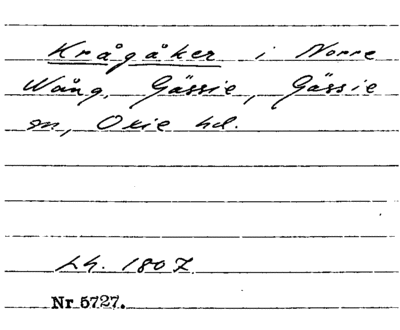 Krågåker i Norre
Wång, Gässie, Gässie
sn, Oxie hd.
Lh. 1807
Nr 5727.